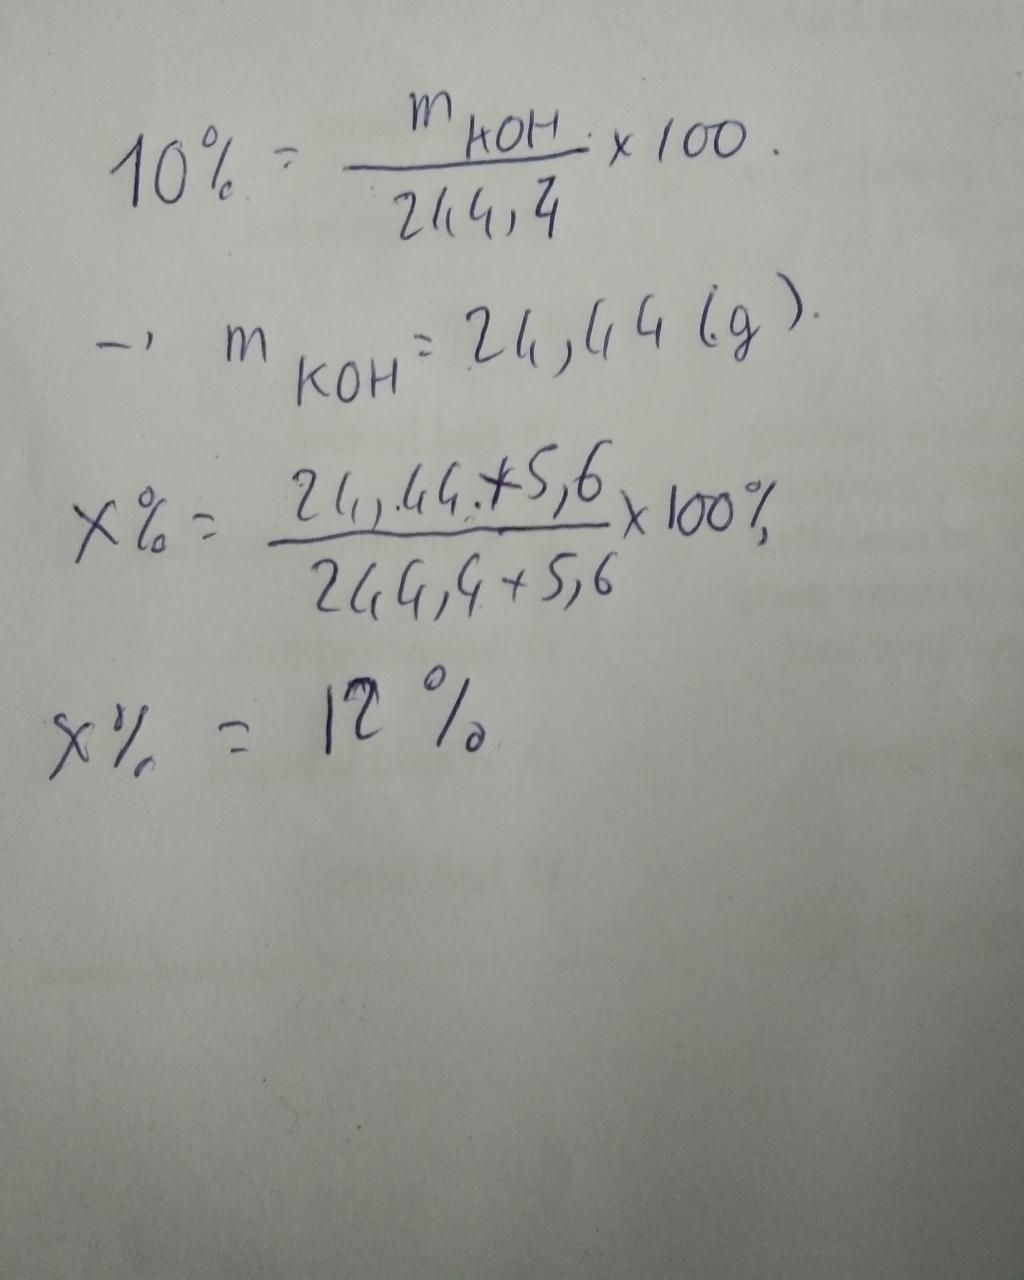 10% = m KOH / 244,4 x 100.
→ m KOH = 24,44 (g).
x% = 24,44 + 5,6 / 244,4 + 5,6 x 100%
x% = 12 %